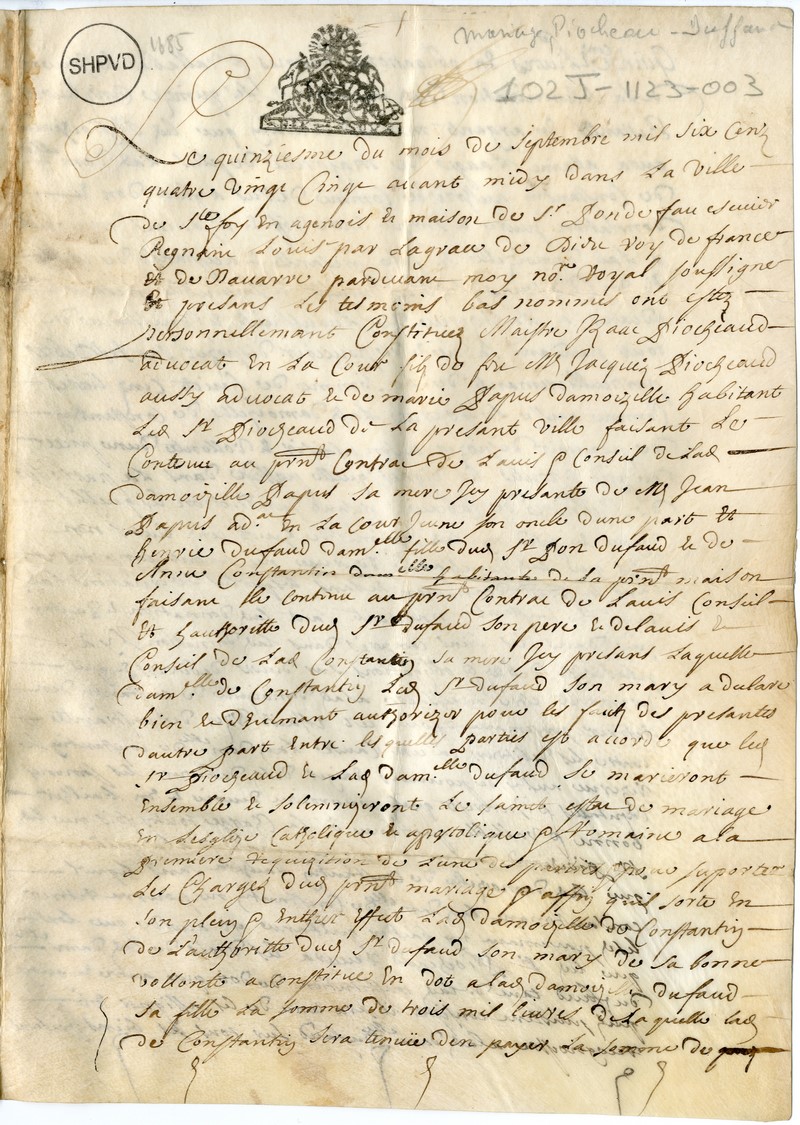 SHPVD
1685
mariage Piocheau - Duffaud
102 J - 1123 - 003
Le quinziesme du mois de septembre mil six cenz
quatre vingt Cinqe avant midy dans La Ville
de Ste foy En agenois Et maison de Sr Dondufau escuier
Regnant Louis par La grace de Dieu roy de france
Et de Navarre pardevant moy nore Royal soussigne
Et presans Les tesmoins bas nommes ont estez
personnellemant Constituez Maistre Izaac Piocheaud
advocat En La Cour filz de feu Me Jacquez Piocheaud
aussy advocat Et de marie Papus damoizelle habitant
Led Sr Piocheaud de La presant ville faisant Le
Contenu au prnt Contrac de Lavis & Conseil de Lad
damoizelle Papus sa mere Icy presante de Me Jean
Papus adat En La Cour Jeune son oncle dune part Et
henrie dufaud damelle fille dud Sr Don dufaud Et de
Anne Constantin damelle habitante de La prnt maison
faisant Le Contenu au prnt Contrac de Lavis Conseil
Et hauthoritte dud Sr dufaud son pere Et de Lavis Et
Conseil de Lad Constantin sa mere Icy presans Laquelle
damelle de Constantin Led Sr dufaud son mary a declare
bien Et duemant authorizer pour les faitz des presantes
dautre part Entre lesquelles parties est accorde que led
Sr Piocheaud Et Lad damelle dufaud Se marieront
Ensemble Et solemnizeront Le sainct estat de mariage
En Lesglize Catholique Et apostolique & Romaine a la
premiere requizition de Lune des parties pour suporter
Les Charges dud prnt mariage & affin quil sorte En
Son plein & Enthier Effect Lad damoizelle de Constantin
de Lauthoritte dud Sr dufaud son mary de sa bonne
vollonte a constitue En dot a lad damoizelle dufaud
Sa fille La somme de trois mil livres de Laquelle lad
de Constantin sera tenue den payer La somme de